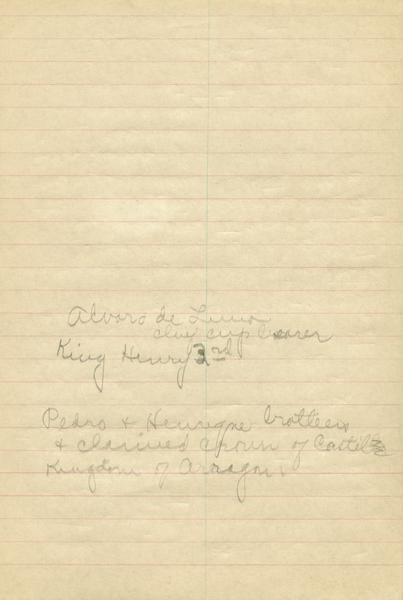 Alvaro de Luna
chief cup bearer
King Henry 3rd
Pedro & Henrique brothers
& claimed crown of Castile
Kingdom of Arragon.